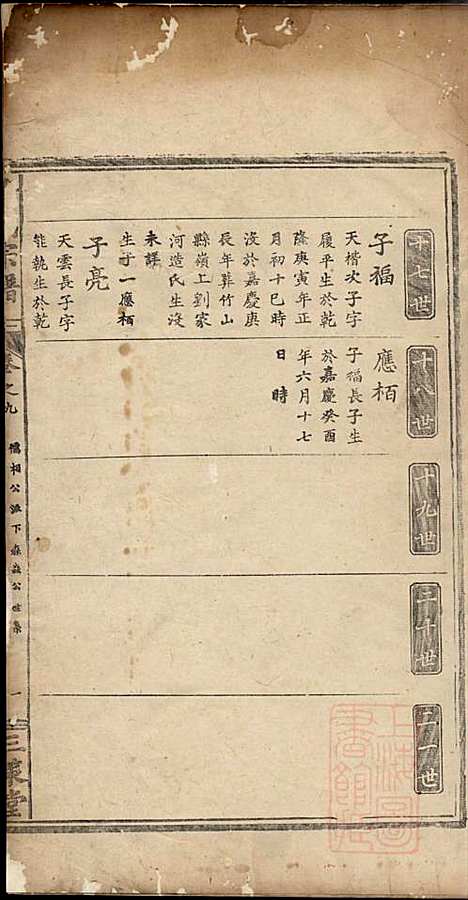 十七世
子福
天楷次子字
履平生於乾
隆庚寅年正
月初十巳時
沒於嘉慶庚
辰年葬竹山
縣嶺上劉家
河造氏生沒
未詳
生子一應栢
子亮
天雲長子字
能執生於乾
十八世
應栢
子福長子生
於嘉慶癸酉
年六月十七
日 時
十九世
二十世
二一世
宗譜
卷之九
公派下森淼公世系
一
三槐堂
上海圖
書館藏